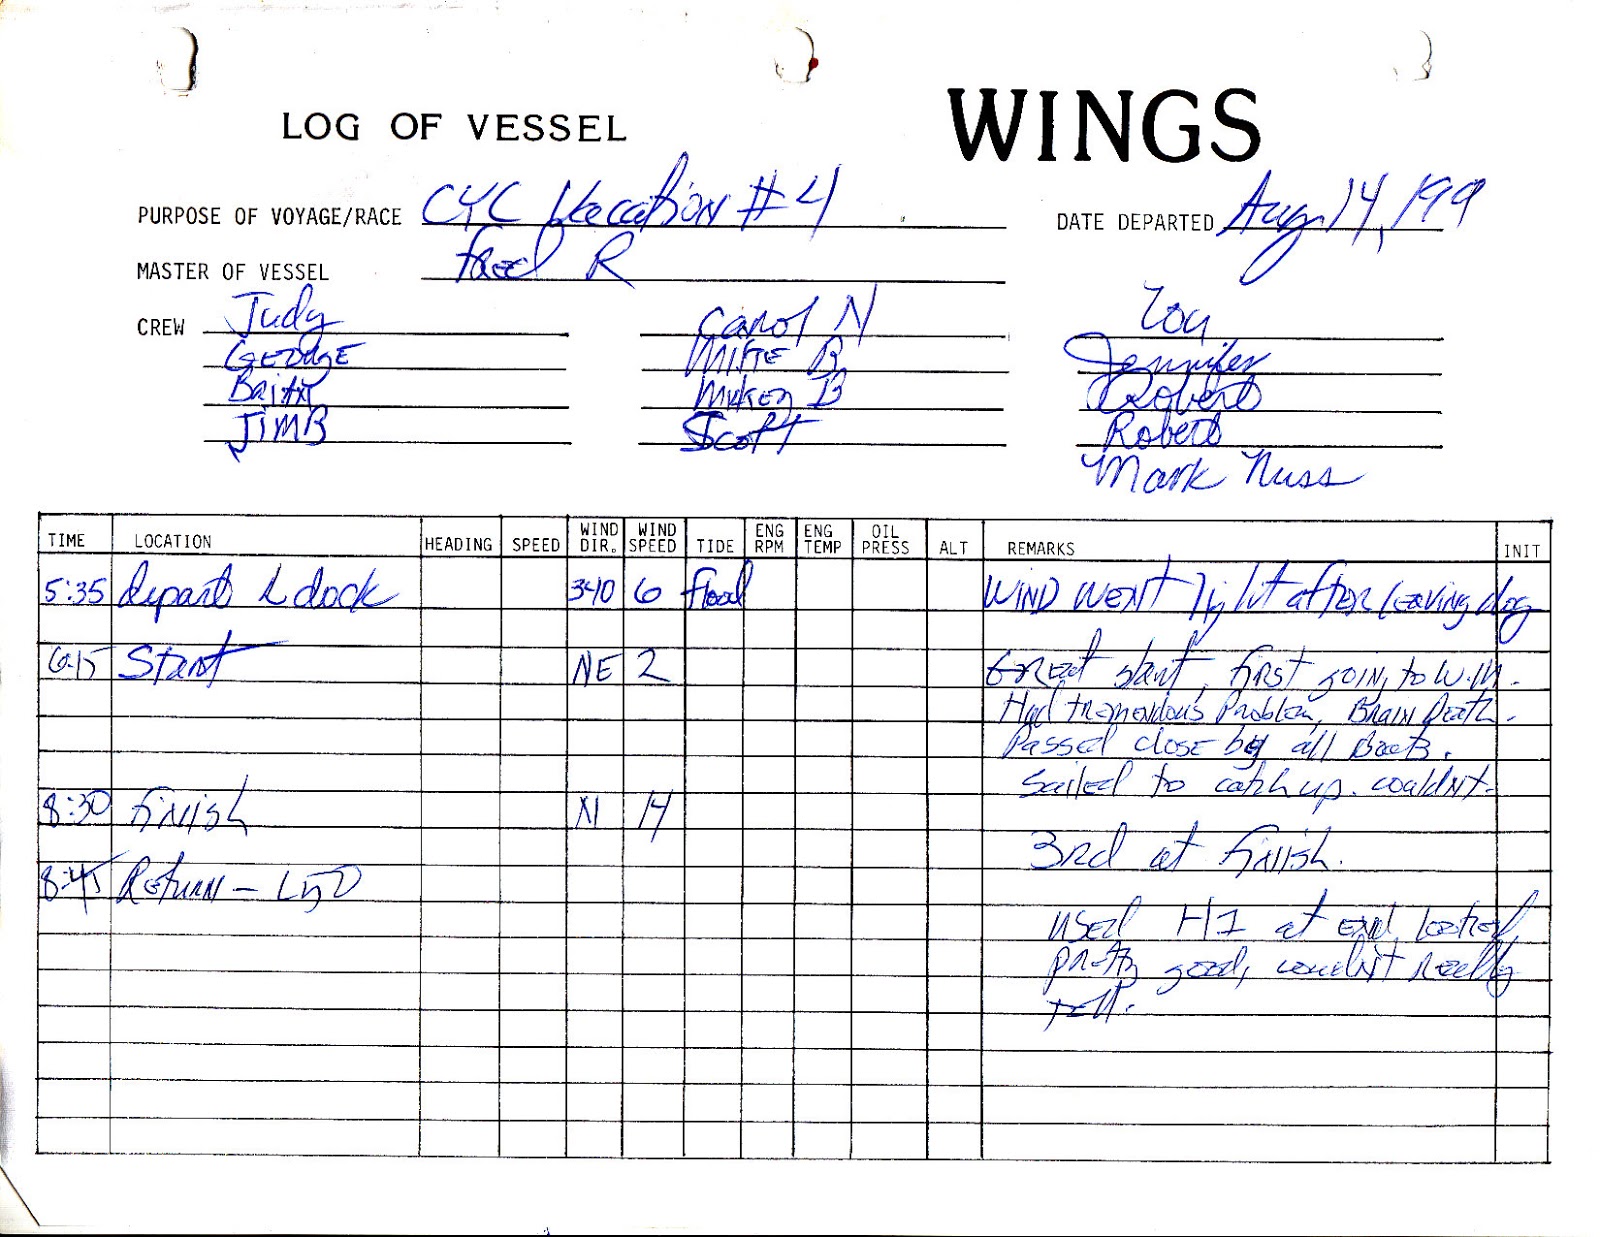 LOG OF VESSEL WINGS
PURPOSE OF VOYAGE/RACE CYC #4 DATE DEPARTED Aug 14, 199
MASTER OF VESSEL Fred R
CREW Judy Carol N
GEORGE MIKE B Jennifer
Brian B Robert
JIM B Scott Robert
Mark Nuss
TIME LOCATION HEADING SPEED WIND DIR. WIND SPEED TIDE ENG RPM ENG TEMP OIL PRESS ALT REMARKS INIT
5:35 depart L dock 340 6 flood WIND WENT light after leaving
6:15 Start NE 2 Great start, first going to W.M.
Had tremendous Problem, BRAIN Death.
Passed close by all Boats.
Sailed to catch up. couldnt.
8:30 finish N 14
3rd at finish.
8:45 Return -
used H1 at end, looked
pretty good, couldn't really
tell.